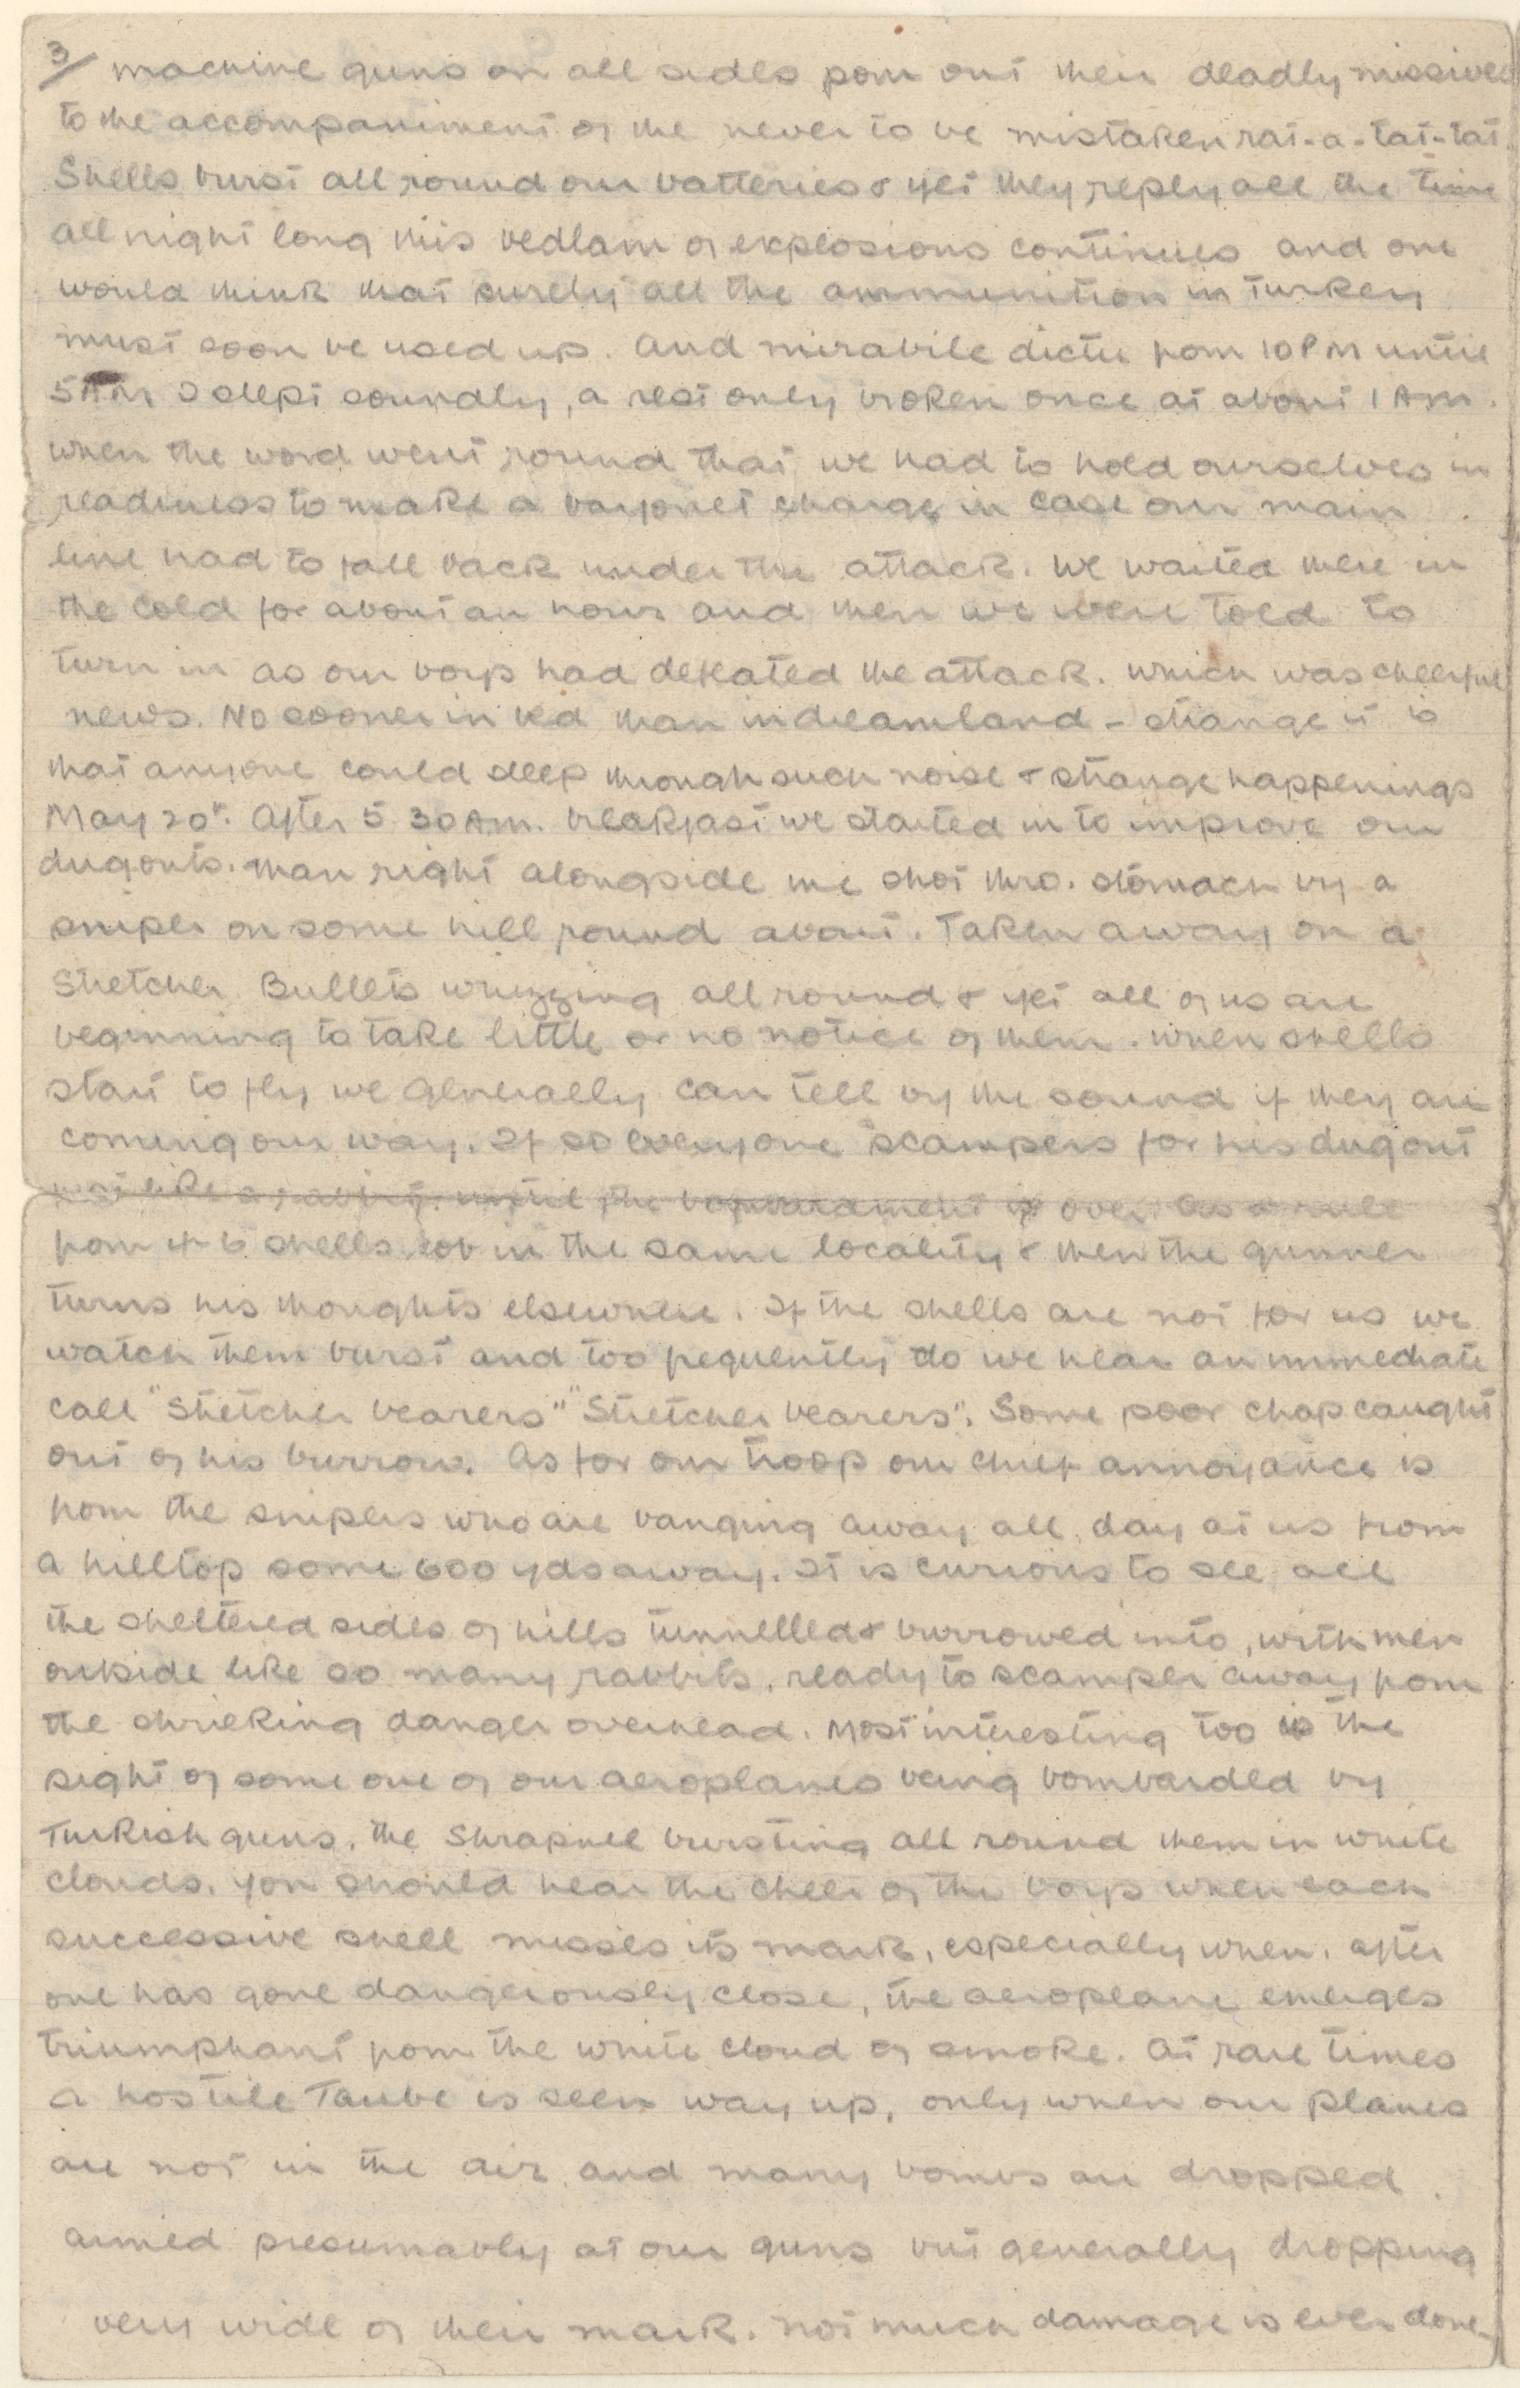 3/ machine guns on all sides pour out their deadly missives
to the accompaniment of the never to be mistaken rat-a-tat-tat.
Shells burst all round our batteries & yet they reply all the time
all night long this bedlam of explosions continues and one
would think that surely all the ammunition in Turkey
must soon be used up. And mirabile dictu from 10 PM until
5 AM I slept soundly, a rest only broken once at about 1 AM.
when the word went round that we had to hold ourselves in
readiness to make a bayonet charge in case our main
line had to fall back under the attack. We waited there in
the cold for about an hour and then we were told to
turn in as our boys had defeated the attack. which was cheerful
news. No sooner in bed than in dreamland - strange it is
that anyone could sleep through such noise & strange happenings
May 20th. After 5.30 AM. breakfast we started in to improve our
dugouts. Man right alongside me shot thro. stomach by a
sniper on some hill round about. Taken away on a
Stretcher. Bullets whizzing all round & yet all of us are
beginning to take little or no notice of them. When shells
start to fly we generally can tell by the sound if they are
coming our way. If so everyone scampers for his dugout
just like a rabbit. until the bombardment is over. As a rule
from 4-6 shells lob in the same locality & then the gunner
turns his thoughts elsewhere. If the shells are not for us we
watch them burst and too frequently do we hear an immediate
call "Stretcher bearers" "Stretcher bearers". Some poor chap caught
out of his burrow. As for our troop our chief annoyance is
from the snipers who are banging away all day at us from
a hilltop some 600 yds away. It is curious to see all
the sheltered sides of hills tunnelled & burrowed into, with men
outside like so many rabbits, ready to scamper away from
the shrieking danger overhead. Most interesting too is the
sight of some one of our aeroplanes being bombarded by
Turkish guns, the Shrapnel bursting all round them in white
clouds. You should hear the cheer of the boys when each
successive shell misses its mark, especially when, after
one has gone dangerously close, the aeroplane emerges
triumphant from the white cloud of smoke. At rare times
a hostile Taube is seen way up, only when our planes
are not in the air and many bombs are dropped.
aimed presumably at our guns but generally dropping
very wide of their mark. Not much damage is ever done-